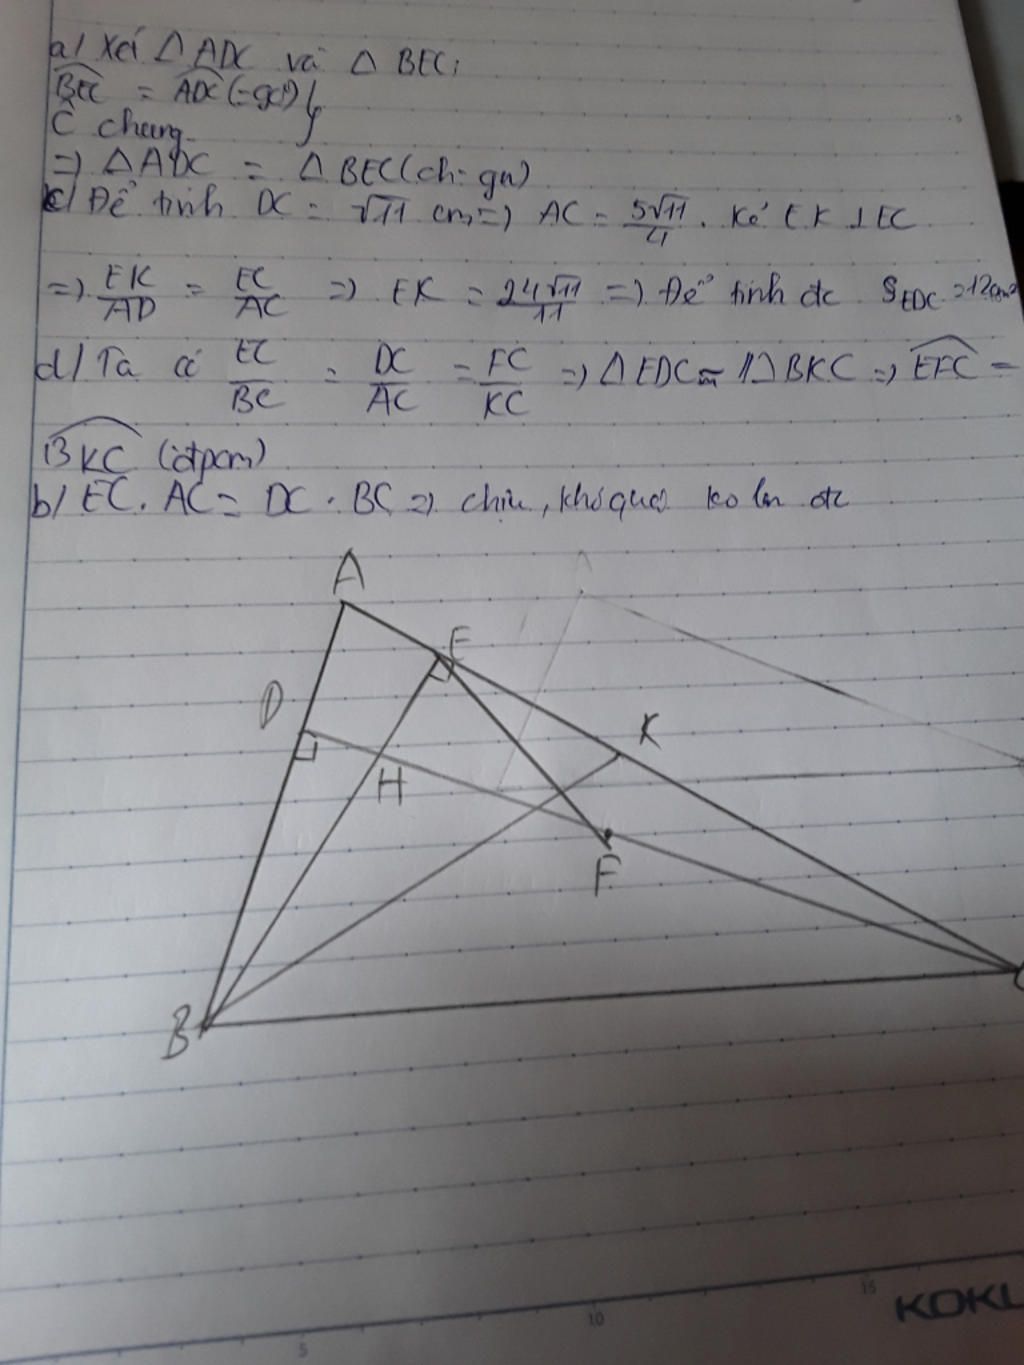 a/ Xét △ ADC và △ BEC:
BEC = ADC (=90°) }
C chung
=> △ ADC = △ BEC (ch-gn)
c/ Để tính DC = √11 cm => AC = 5√11/4 . Kẻ EK ⊥ EC
=> EK/AD = EC/AC => EK = 24√11/11 => Để tính đc S EDC = 12cm²
d/ Ta có EC/BC = DC/AC = FC/KC => △ EDC ~ △ BKC => EFC =
BKC (đpcm)
b/ EC . AC = DC . BC => chịu, khó quá ko làm đc
A
E
D
K
H
F
B
C
5
10
15
KOKU